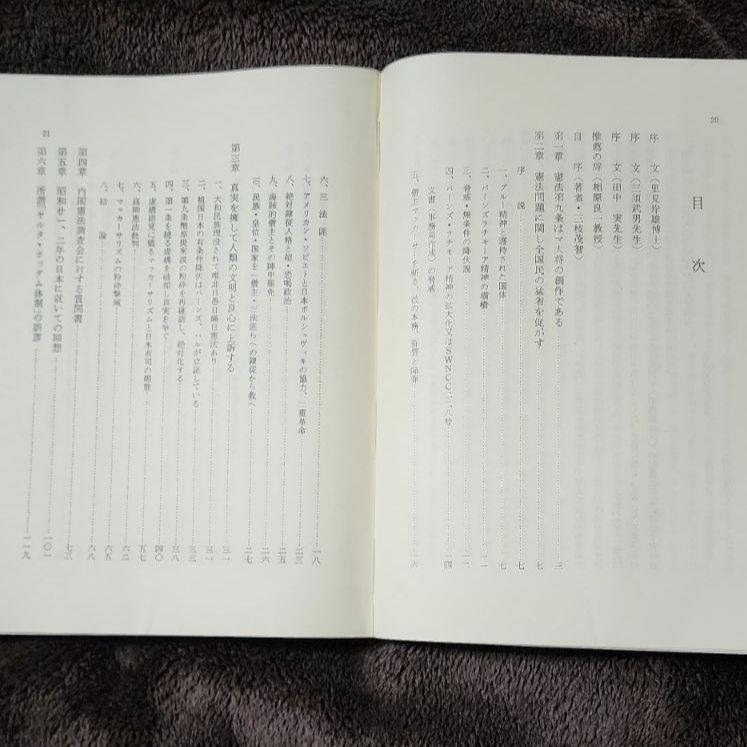 20
目次
序 文 (里見岸雄博士)
序 文 (三須武男先生)
序 文 (田中 実先生)
推薦の辞 (相原良一教授)
自 序 (著者・三枝茂智)
第一章 憲法第九条はマ大将の偽作である……三
第二章 憲法問題に関し全国民の猛省を促がす……七
序 説……七
一、グルー精神と護持された国体……七
二、バーンズ・ラチモーア精神の 槍……一一
三、脅威・無条件の降伏説……一二
四、バーンズ・ラチモーア精神の拡大化又はSWNCC二二八号
文書(事務局作成)の脅威……一四
五、僭主マッカーサーを斬る、彼の本務、資質と 弾……一六
六、三 法 匪……一八
七、アメリカン・ソビエットと日本ボルショヴィキの協力、二重革命……二三
八、絶対隷従人格と超・恐喝政治……二五
九、海賊的僭主とその陣中罷免……二六
十、民族・皇位・国家を「僭主・三法匪らへの隷従から救へ……二七
第三章 真実を擁して人類の文明と良心に上訴する……三一
一、大和民族埋没されて唯非日巻日瞞日憲法あり……三一
二、祖国日本の有条件降伏はバーンズ、ハルが立証している……三三
三、第九条幣原提案説の粉砕を再確認し、絶対化する……三八
四、第一条を繞る虚構を破却し真実を挙ぐ……四〇
五、虚構研究に踊るマッカーサリズムと日本有司の醜態……五七
六、高柳憲法批判……六二
七、マッカーサリズムの粉砕撃滅……六五
八、結 論……六八
第四章 内閣憲法調査会に対する質問書……七三
第五章 昭和廿一、二年の日本に就いての回想……一〇一
第六章 所謂「ヤルタ・ポツダム体制」の誤謬……一一九
21